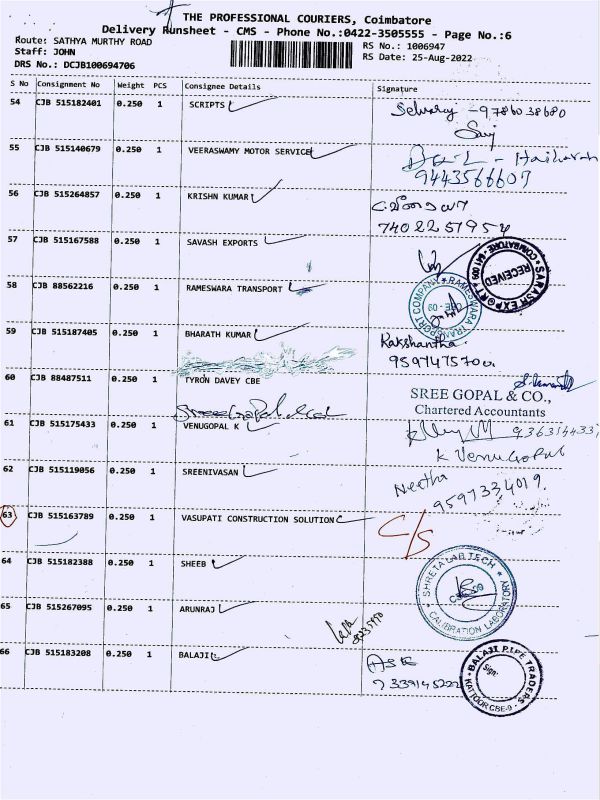 THE PROFESSIONAL COURIERS, Coimbatore
Delivery Runsheet - CMS - Phone No.:0422-3505555 - Page No.:6
Route: SATHYA MURTHY ROAD
RS No.: 1006947
Staff: JOHN
RS Date: 25-Aug-2022
DRS No.: DCJB100694706
S No Consignment No Weight PCS Consignee Details Signature
54 CJB 515182401 0.250 1 SCRIPTS
55 CJB 515140679 0.250 1 VEERASWAMY MOTOR SERVICE
9443566607
56 CJB 515264857 0.250 1 KRISHN KUMAR
7402251954
57 CJB 515167588 0.250 1 SAVASH EXPORTS
RECEIVED
58 CJB 88562216 0.250 1 RAMESWARA TRANSPORT
RAMESWARA TRANSPORT COMPANY
CBE - 09
59 CJB 515187405 0.250 1 BHARATH KUMAR
Rakshantha
60 CJB 88487511 0.250 1 TYRON DAVEY CBE
SREE GOPAL & CO.,
Chartered Accountants
61 CJB 515175433 0.250 1 VENUGOPAL K
K Venugopal
62 CJB 515119056 0.250 1 SREENIVASAN
Neetha
9597334019.
63 CJB 515163789 0.250 1 VASUPATI CONSTRUCTION SOLUTION
C/S
64 CJB 515182388 0.250 1 SHEEB
SHRETA LAB TECH
CALIBRATION LABORATORY
65 CJB 515267095 0.250 1 ARUNRAJ
66 CJB 515183208 0.250 1 BALAJI
7339145222
BALAJI PIPE TRADERS
Sign:
KATTOOR CBE-9